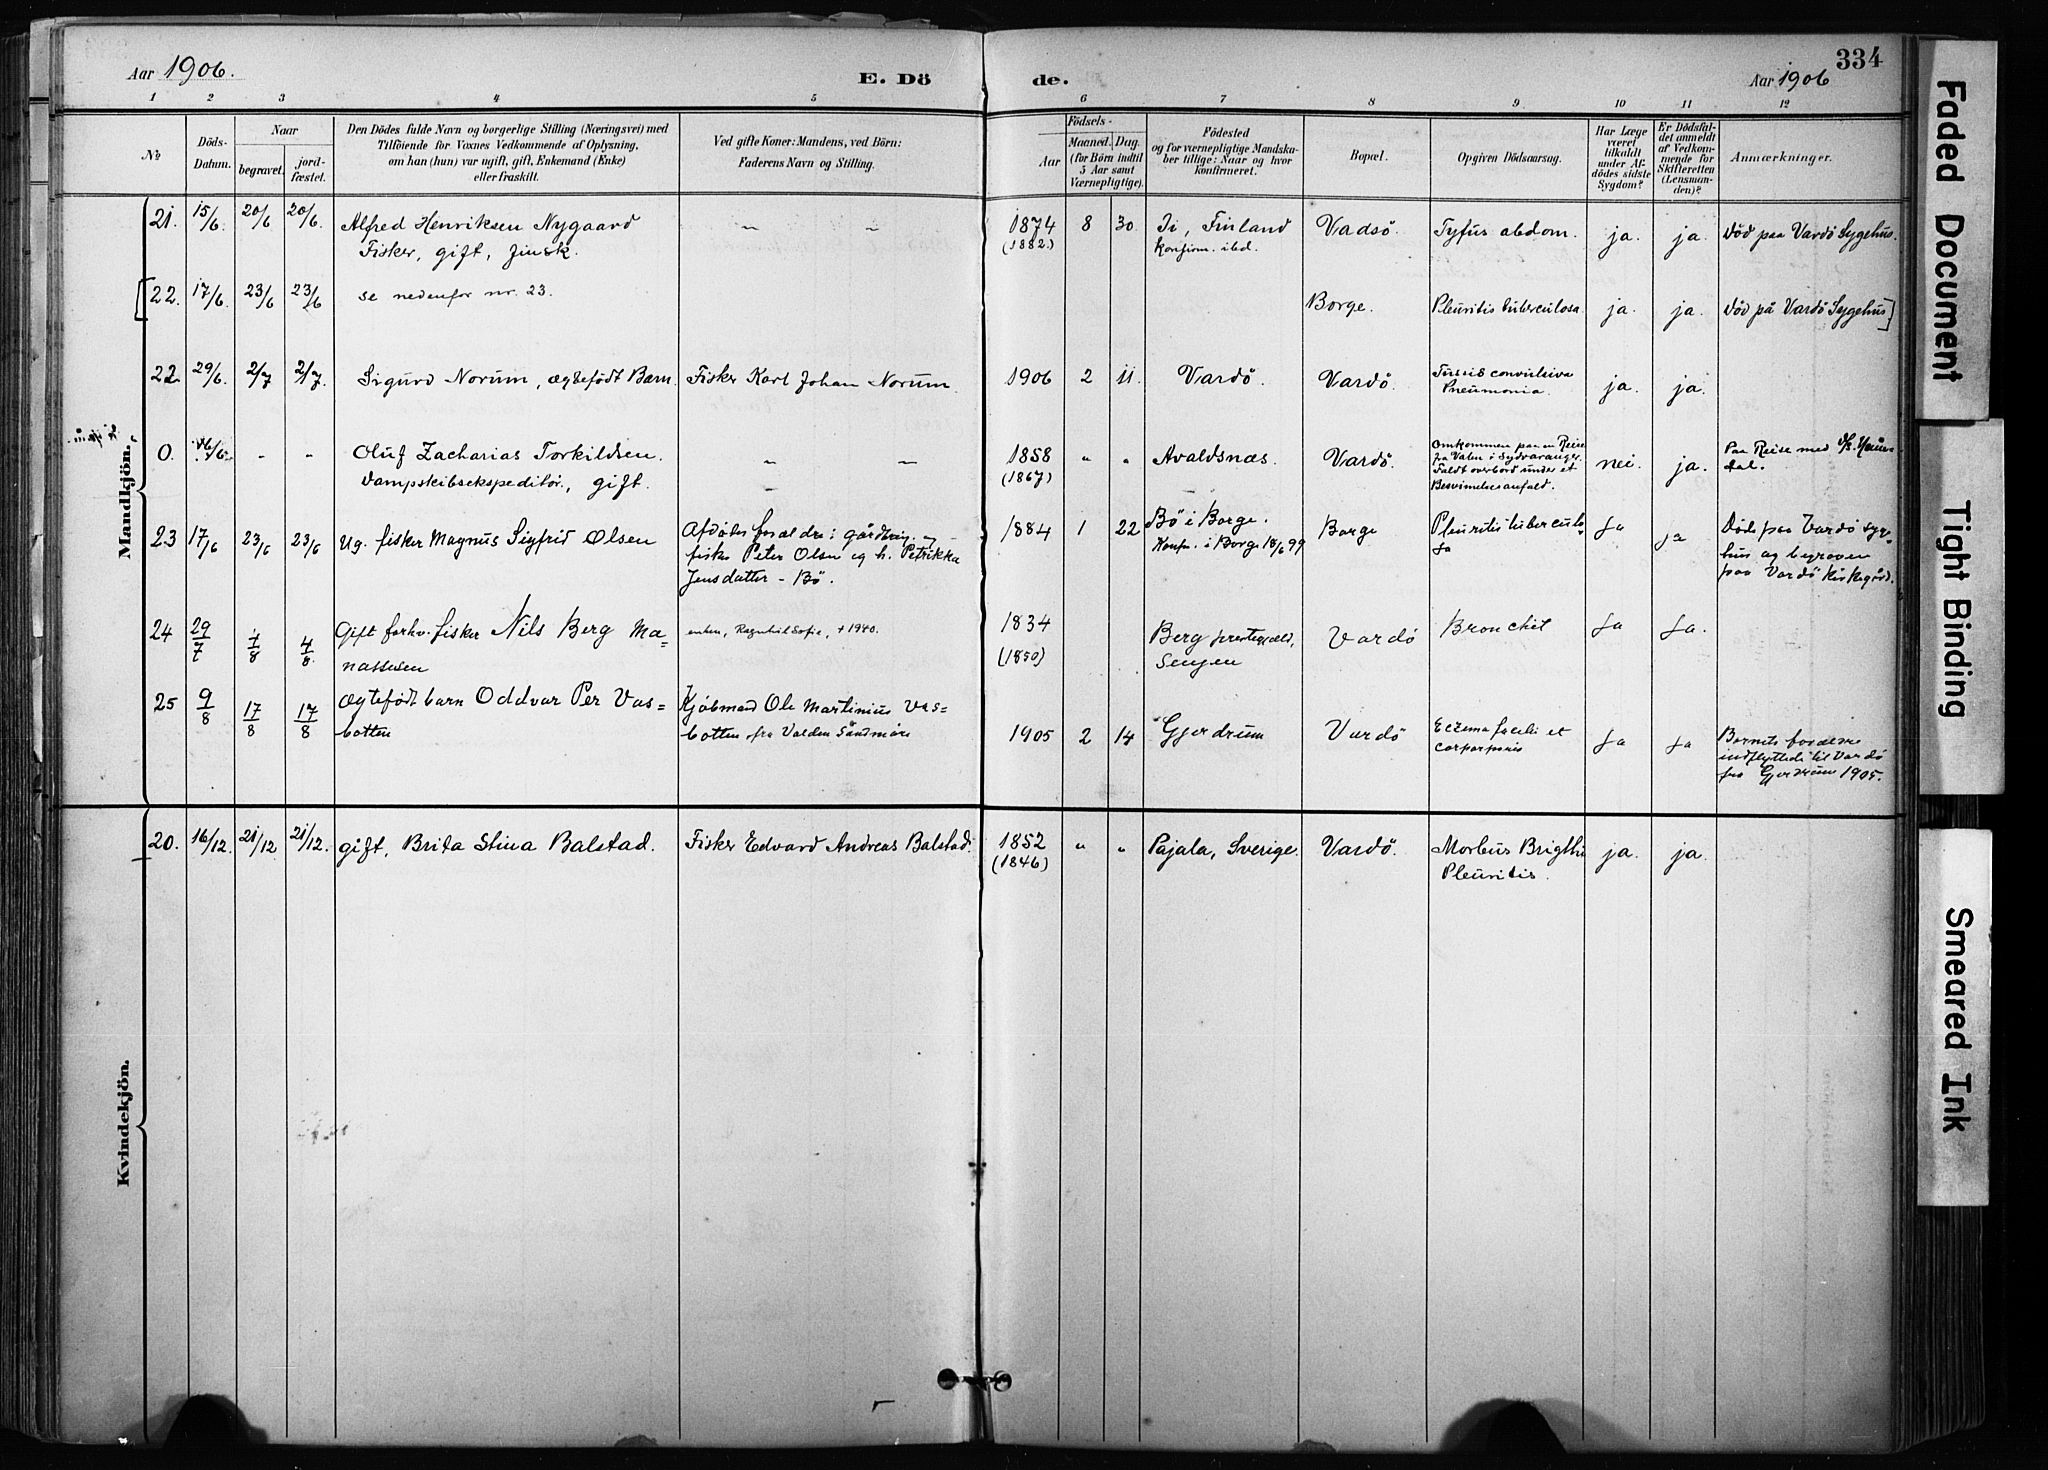 Aar 1906.
E. Dö
de.
334
Aar 1906
1 2 3 4 5 6 7 8 9 10 11 12
No
Döds-
Datum.
Naar
begravet.
jord-
fæstet.
Den Dödes fulde Navn og borgerlige Stilling (Næringsvei) med
Tilföiende for Voxnes Vedkommende af Oplysning,
om han (hun) var ugift, gift, Enkemand (Enke)
eller fraskilt.
Ved gifte Koner: Mandens, ved Börn:
Faderens Navn og Stilling.
Födsels-
Aar
Maaned.
Dag.
(for Börn indtil
5 Aar samt
Værnepligtige).
Födested
og for værnepligtige Mandska-
ber tillige: Naar og hvor
konfirmeret.
Bopæl.
Opgiven Dödsaarsag.
Har Læge
været
tilkaldt
under Af-
dödes sidste
Sygdom?
Er Dödsfal-
det anmeldt
af Vedkom-
mende for
Skifteretten
(Lensman-
den)?
Anmærkninger.
Mandkjön.
21. 15/6. 20/6 20/6. Alfred Henriksen Nygaard
Fisker, gift, finsk.
1874 8 30. Ii, Finland Vadsö. Tyfus abdom. ja. ja. Död paa Vardö Sygehus.
(1882) Konfirm. ibd.
[22. 17/6. 23/6 23/6 se nedenfor nr. 23.
Borge. Pleuritis tuberculosa. ja. ja. Död på Vardö Sygehus]
22 29/6. 2/7 2/7. Sigurd Norum, ægtefödt Barn. Fisker Karl Johan Norum.
1906 2 11. Vardö. Vardö. Tussis convulsiva
Pneumonia. ja. ja.
0. Oluf Zacharias Torkildsen.
Dampskibsekspeditör, gift.
1858 " " Avaldsnæs. Vardö. Omkommen paa en Reise
(1867)
Sydvaranger.
Faldt overbord under et
Besvimelsesanfald. nei. ja. Paa Reise med
23 17/6 23/6 23/6 Ug. fisker Magnus Sigfrid Olsen Afdödes forældre: gårdbrug. og
fisker Peter Olsen og h. Petrikka
Jensdatter - Bö.
1884 1 22 Bö i Borge. Borge Pleuritis tuberculo-
sa Ja Ja
Konfn. i Borge 18/6 99
Döde paa Vardö syge-
hus og begraven
paa Vardö kirkegård.
24 29/7 4/8 4/8. Gift forhv. fisker Nils Berg Ma=
nassesen enken, Ragnhil Sofie, + 1940.
1834 Berg prestegjæld, Vardö Bronchit Ja Ja.
(1850) Senjen
25 9/8 17/8 17/8 Ægtefödt barn Oddvar Per Vas=
botten Kjöbmand Ole Martinius Vas=
botten fra Volden Söndmöre
1905 2 14 Gjerdrum Vardö Eczema faciei et
corporis Ja Ja Barnets forældre
indflyttede til Vardö
fra Gjerdrum 1905.
Kvindekjön.
20. 16/12. 21/12. 21/12. gift, Brita Stina Balstad. Fisker Edvard Andreas Balstad.
1852 " " Pajala, Sverige. Vardö. Morbus Brigthii ja. ja.
(1846) Pleuritis.
Faded Document
Tight Binding
Smeared Ink